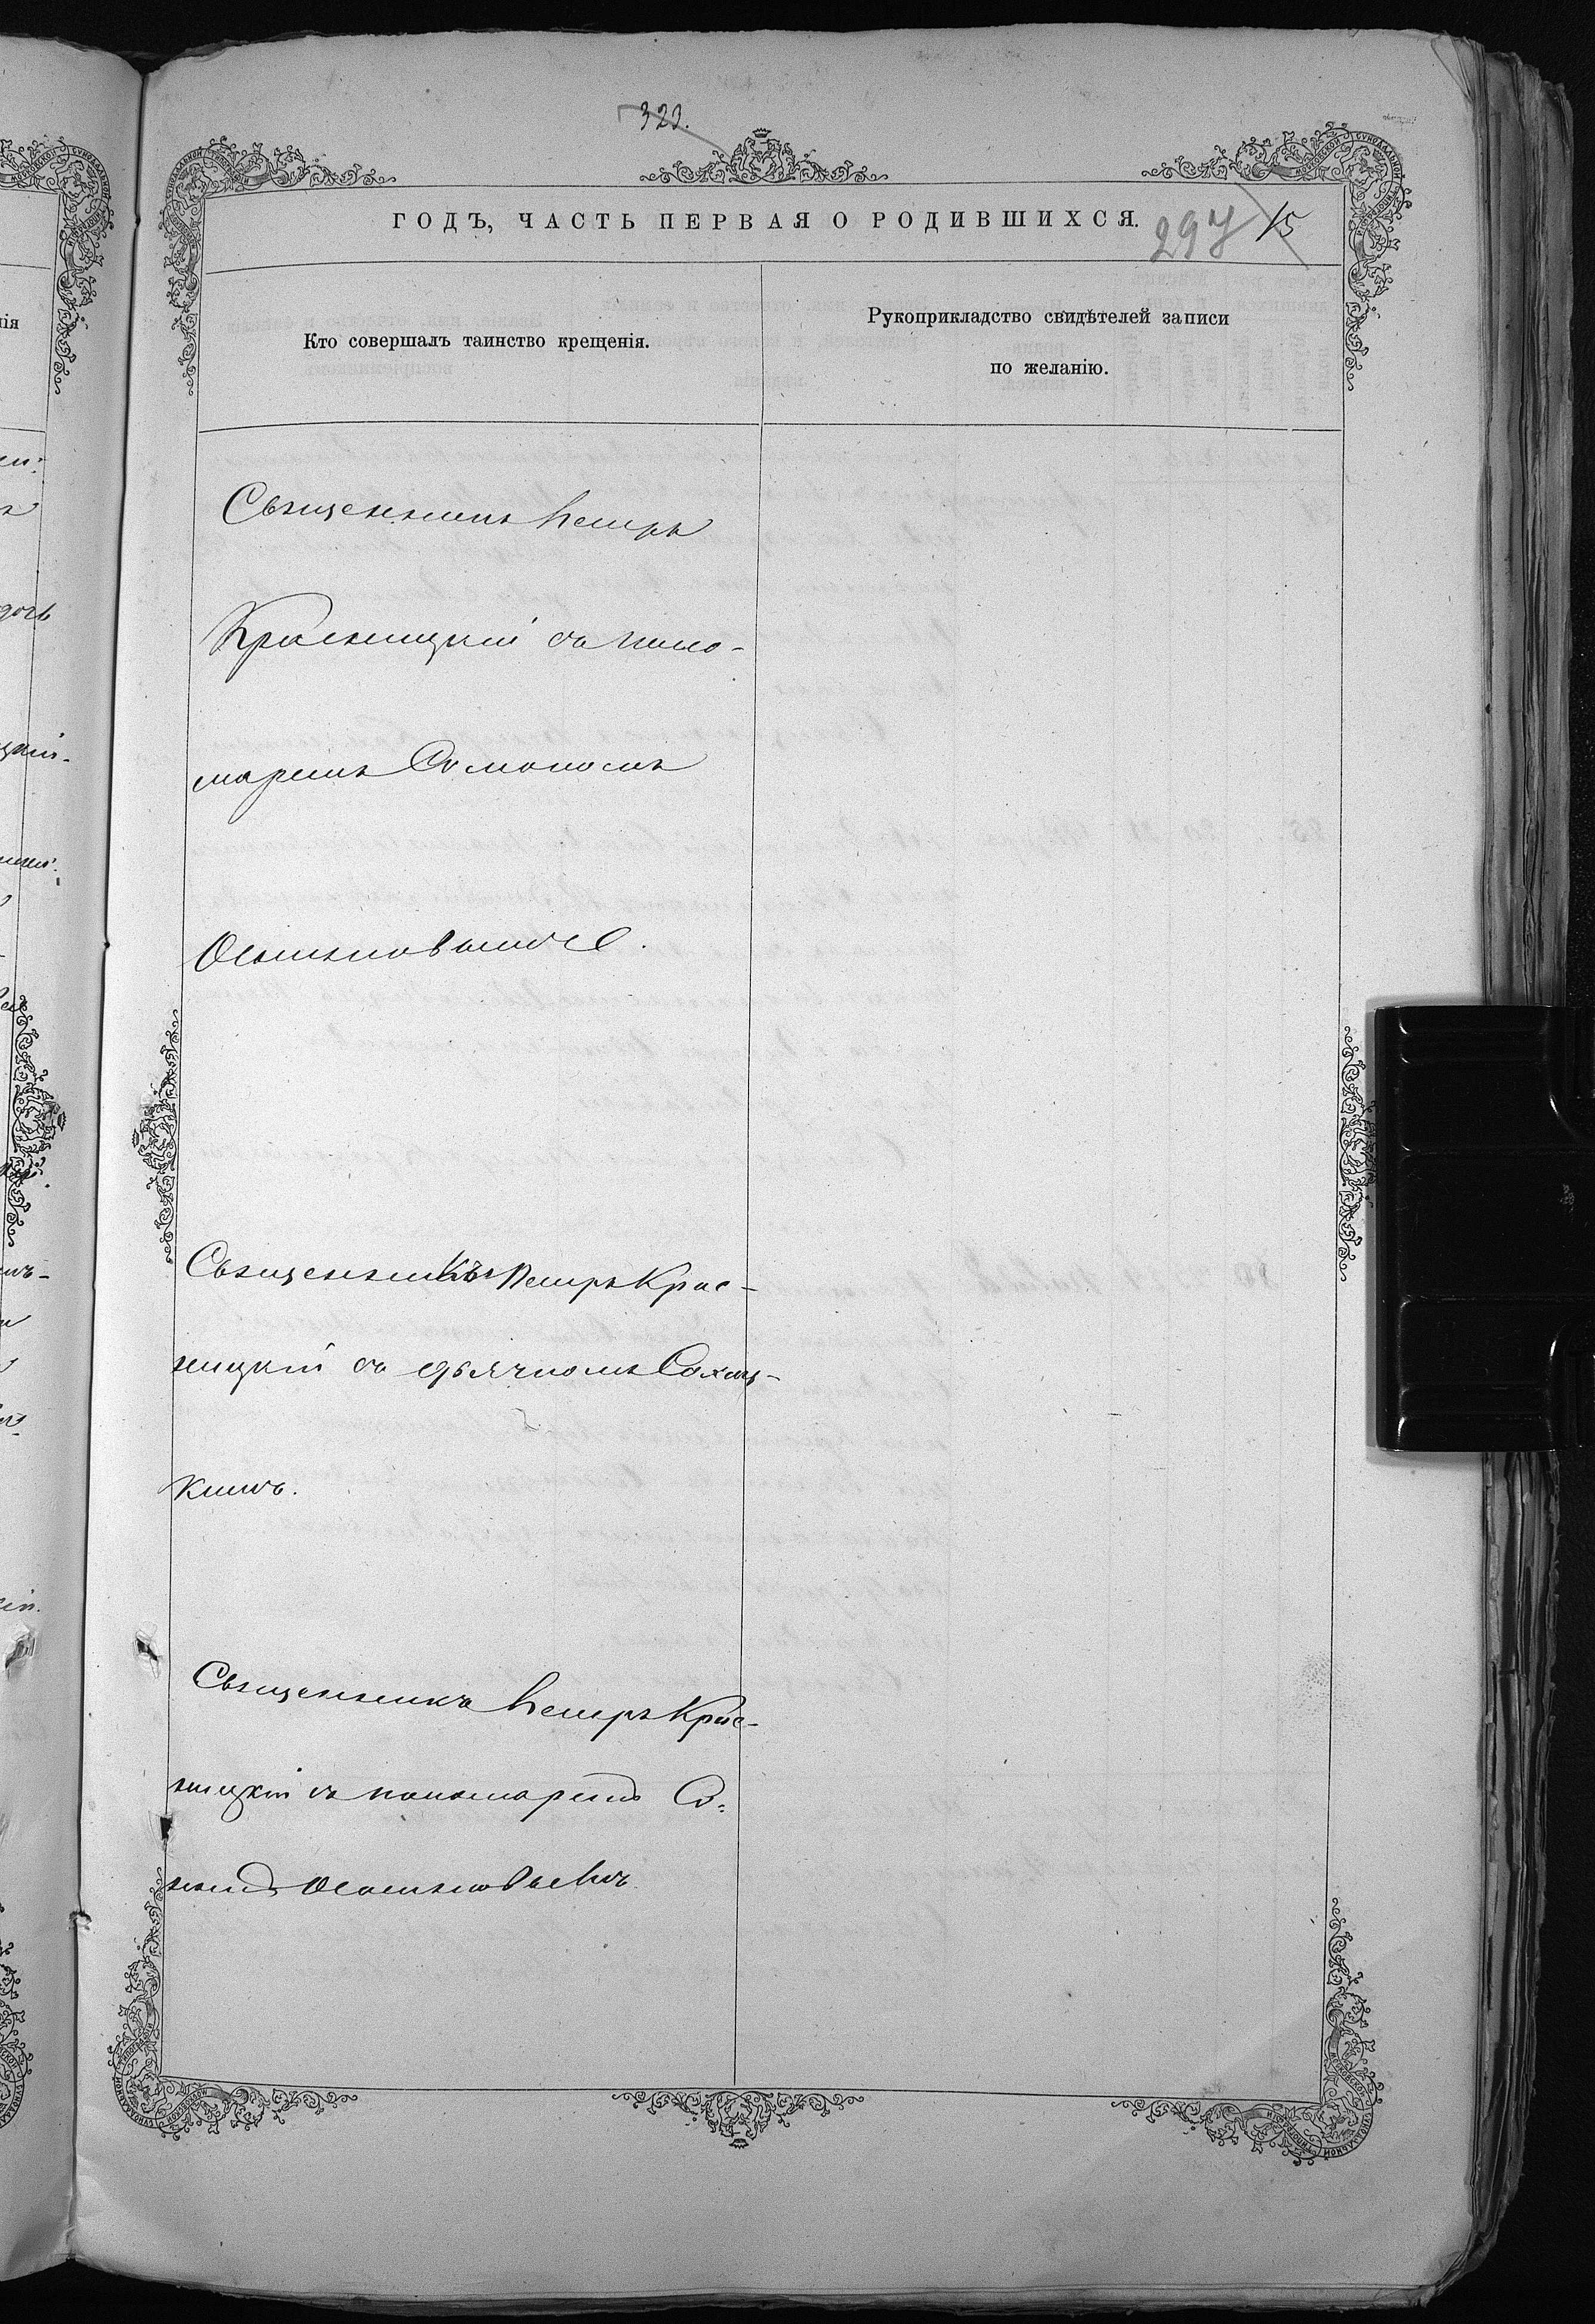 323.
ГОДЪ, ЧАСТЬ ПЕРВАЯ О РОДИВШИХСЯ.
297 15
Кто совершалъ таинство крещенія.
Рукоприкладство свидѣтелей записи
по желанію.
Священникъ Петръ
Красницкій съ поно-
маремъ
Священникъ Петръ Крас-
ницкій съ дьячкомъ Сохац-
кимъ.
Священникъ Петръ Крас-
ницкій съ пономаремъ